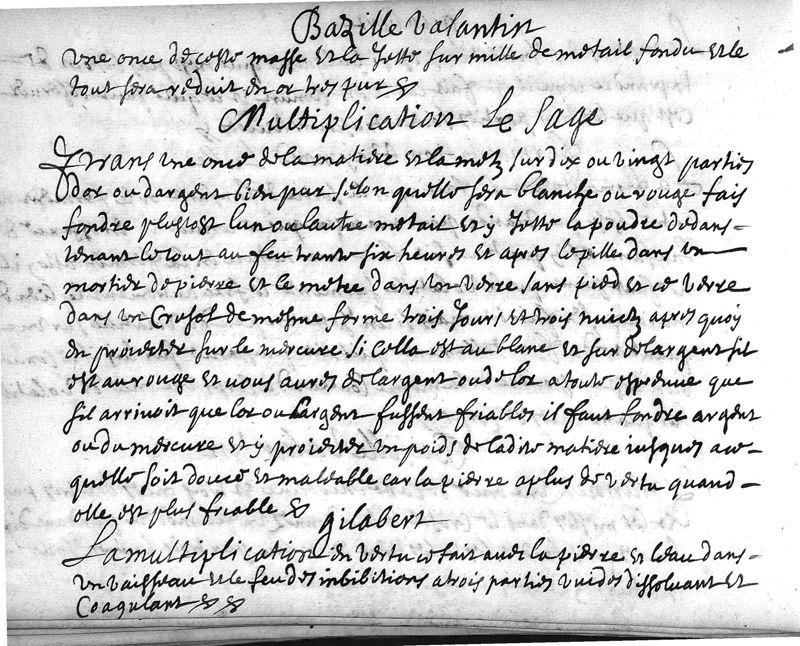 Bazille valantin
une once de ceste masse et la Jette sur mille de metail fondu et le
tout sera reduit en or tres pur
Multiplication Le Sage
Prans une once de la matiere et la metz sur dix ou vingt parties
dor ou dargent bien pur selon quelle sera blanche ou rouge fais
fondre plustost lun ou lautre metail et y Jette la poudre dedans
tenant le tout au feu trante six heures et apres le pille dans un
mortier de pierre et le metee dans un verre sans pied et ce verre
dans un Crusol de mesme forme trois Jours et trois nuictz apres quoy
en proiecter sur le mercure si cella est au blanc et sur de largent sil
est au rouge et vous aures de largent ou de lor a toute espreuve que
sil arrivoit que lor ou largent fussent friables il faut fondre argent
ou du mercure et y proiecter un poids de ladite matiere iusques a ce
quelle soit douce et maleable car la pierre a plus de vertu quand
elle est plus friable
gilabert
La multiplication en vertu ce fait avec la pierre et leau dans
un vaisseau et le feu des imbibitions a trois parties vuides dissoluant et
Coagulant